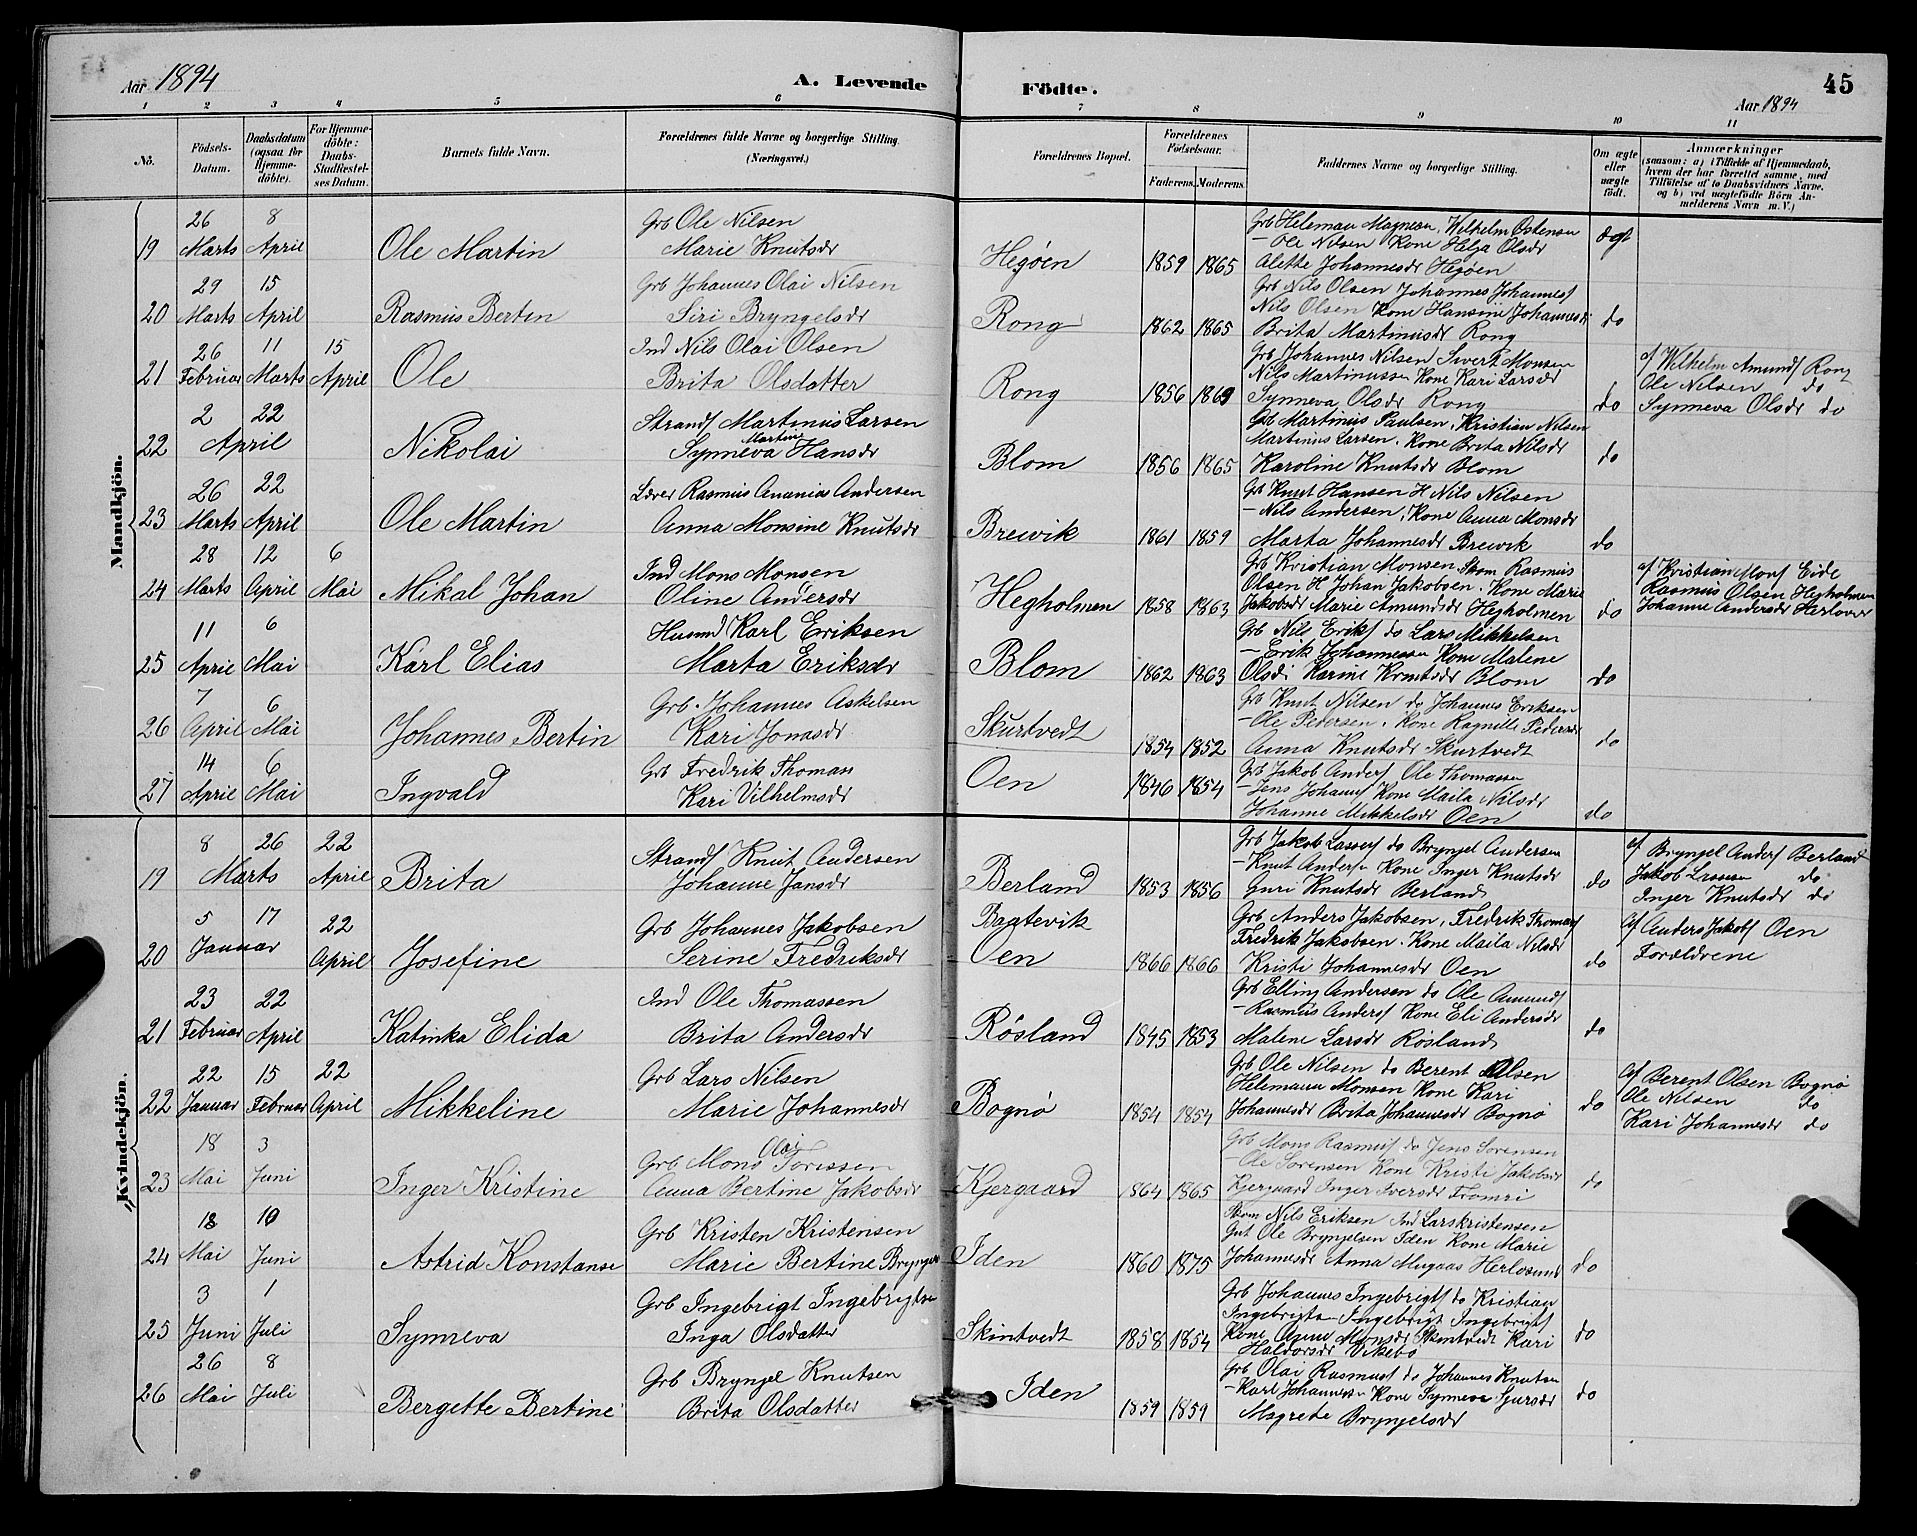 Aar 1894
A. Levende Födte.
45
Aar 1894
1 2 3 4 5 6 7 8 9 10 11
No.
Födsels-Datum.
Daabsdatum (ogsaa for Hjemme-döbte).
For Hjemme-döbte: Daabs-Stadfæstel-ses Datum.
Barnets fulde Navn.
Forældrenes fulde Navne og borgerlige Stilling. (Næringsvei.)
Forældrenes Bopæl.
Forældrenes Födselsaar.
Faderens. Moderens.
Faddernes Navne og borgerlige Stilling.
Om ægte eller uægte født.
Anmærkninger
(saasom: a) i Tilfælde af Hjemmedaab,
hvem der har forrettet samme, med
Tilföielse af to Daabsvidners Navne,
og b) ved uægtefödte Börn An-
melderens Navn m. V.)
Mandkjön.
19 26 Marts 8 April Ole Martin
Grb Ole Nilsen
Marie Knutsdr
Hegöen 1859 1865
Grb Heleman Magnesen, Wilhelm Ostensen
– Ole Nilsen Kone Helga Olsdr
Alette Johannesdr Hegöen
ægt
20 29 Marts 15 April Rasmus Bertin
Grb Johannes Olai Nilsen
Siri Bryngelsdr
Rong 1862 1865
Grb Nils Olsen Johannes Johannesf
Nils Olsen Kone Hansine Johannesdr
Brita Martinusdr Rong
do
21 26 Februar 11 Marts 15 April Ole
Ind Nils Olai Olsen
Brita Olsdatter
Rong 1856 1869
Grb Johannes Nilsen Sivert Monsen
Nils Martinussen Kone Kari Larsdr
Synneva Olsdr Rong
do
af Wilhelm Amundf Rong
Ole Nilsen do
Synneva Olsdr do
22 2 22 April Nikolai
Strandf Martinus Larsen
Synneva Martine Hansdr
Blom 1856 1865
Grb Martinus Paulsen, Kristian Nilsen
Martinus Larsen. Kone Brita Nilsdr
Karoline Knutsdr Blom
do
23 26 Marts 22 April Ole Martin
Lærer Rasmus Ananias Andersen
Anna Monsine Knutsdr
Breivik 1861 1859
Grb Knut Hansen H Nils Nilsen
– Nils Andersen, Kone Anna Monsdr
Marta Johannesdr Breivik
do
24 28 Marts 12 April 6 Mai Mikal Johan
Ind Mons Monsen
Oline Andersdr
Hegholmen 1858 1863
Grb Kristian Monsen Skom Rasmus
Olsen H Johan Jakobsen. Kone Marie
Jakobsdr Marie Amundsdr Hegholmen
do
af Kristian Monf Eide
Rasmus Olsen Hegholmen
Johanne Andersdr Herlover
25 11 April 6 Mai Karl Elias
Husmd Karl Eriksen
Marta Eriksdr
Blom 1862 1863
Grb Nils Erikf do Lars Mikkelsen
– Erik Johannessen Kone Malene
Olsdr Karine Knutsdr Blom
do
26 7 April 6 Mai Johannes Bertin
Grb Johannes Askelsen
Kari Jonasdr
Skurtvedt 1854 1852
Grb Knut Nilsen do Johannes Eriksen
– Ole Pedersen. Kone Ragnille Pedersdr
Anna Knutsdr Skurtvedt
do
27 14 April 6 Mai Ingvald
Grb Fredrik Thomass
Kari Vilhelmsdr
Oen 1846 1854
Grb Jakob Andersf Ole Thomassen
– Jens Johannf Kone Maila Nilsdr
Johanne Mikkelsdr Oen
do
Kvindekjön.
19 8 26 Marts 22 April Brita
Strandf Knut Andersen
Johanne Jansdr
Berland 1853 1856
Grb Jakob Lassesf do Bryngel Andersen
– Knut Andersf Kone Inger Knutsdr
Guri Knutsdr Berland
do
af Bryngel Andersf Berland
Jakob Lassesen do
Inger Knutsdr do
20 5 17 Januar 22 April Josefine
Grb Johannes Jakobsen
Serine Fredriksdr
Bratevik
Oen 1866 1866
Grb Anders Jakobsen, Fredrik Thomasf
Fredrik Jakobsen. Kone Maila Nilsdr
Kristi Johannesdr Oen
do
af Anders Jakobf Oen
Forældrene
21 23 Februar 22 April Katinka Elida
Ind Ole Thomassen
Brita Andersdr
Røsland 1845 1853
Grb Elling Andersen do Ole Amundf
– Rasmus Andersf Kone Eli Andersdr
Malene Larsdr Røsland
do
22 22 Januar 15 Februar 22 April Mikkeline
Grb Lars Nilsen
Marie Johannesdr
Bognø 1854 1854
Grb Ole Nilsen do Berent Olsen
Helemann Monsen Kone Kari
Johannesdr Brita Johannesdr Bognø
do
af Berent Olsen Bognø
Ole Nilsen do
Kari Johannesdr do
23 18 Mai 3 Juni Inger Kristine
Grb Mons Olai Torissen
Anna Bertine Jakobsdr
Kjergaard 1864 1865
Grb Mons Rasmusf do Jens Sorensen
– Ole Sorensen Kone Kristi Jakobsdr
Kjergaard Inger Iversdr Fromri
do
24 18 Mai 10 Juni Astrid Konstanse
Grb Kristen Kristensen
Marie Bertine Bryngels
Iden 1860 1875
Skom Nils Eriksen Ind Lars Kristensen
Gut Ole Bryngelsen Iden Kone Marie
Johannesdr Anna Mugaas Herlosund
do
25 3 Juni 1 Juli Synneva
Grb Ingebrigt Ingebrigtsen
Inga Olsdatter
Skintvedt 1858 1854
Grb Johannes Ingebrigtf do Kristian
Ingebrigtsn Ingebrigt Ingebrigtf
Kone Anna Monsdr Skintvedt Kari
Haldorsdr Vikebø
do
26 26 Mai 8 Juli Bergette Bertine
Grb Bryngel Knutsen
Brita Olsdatter
Iden 1859 1859
Grb Olai Rasmusf do Johannes Knutsen
– Karl Johannessn Kone Synneve Sjursdr
Magrete Bryngelsdr
do